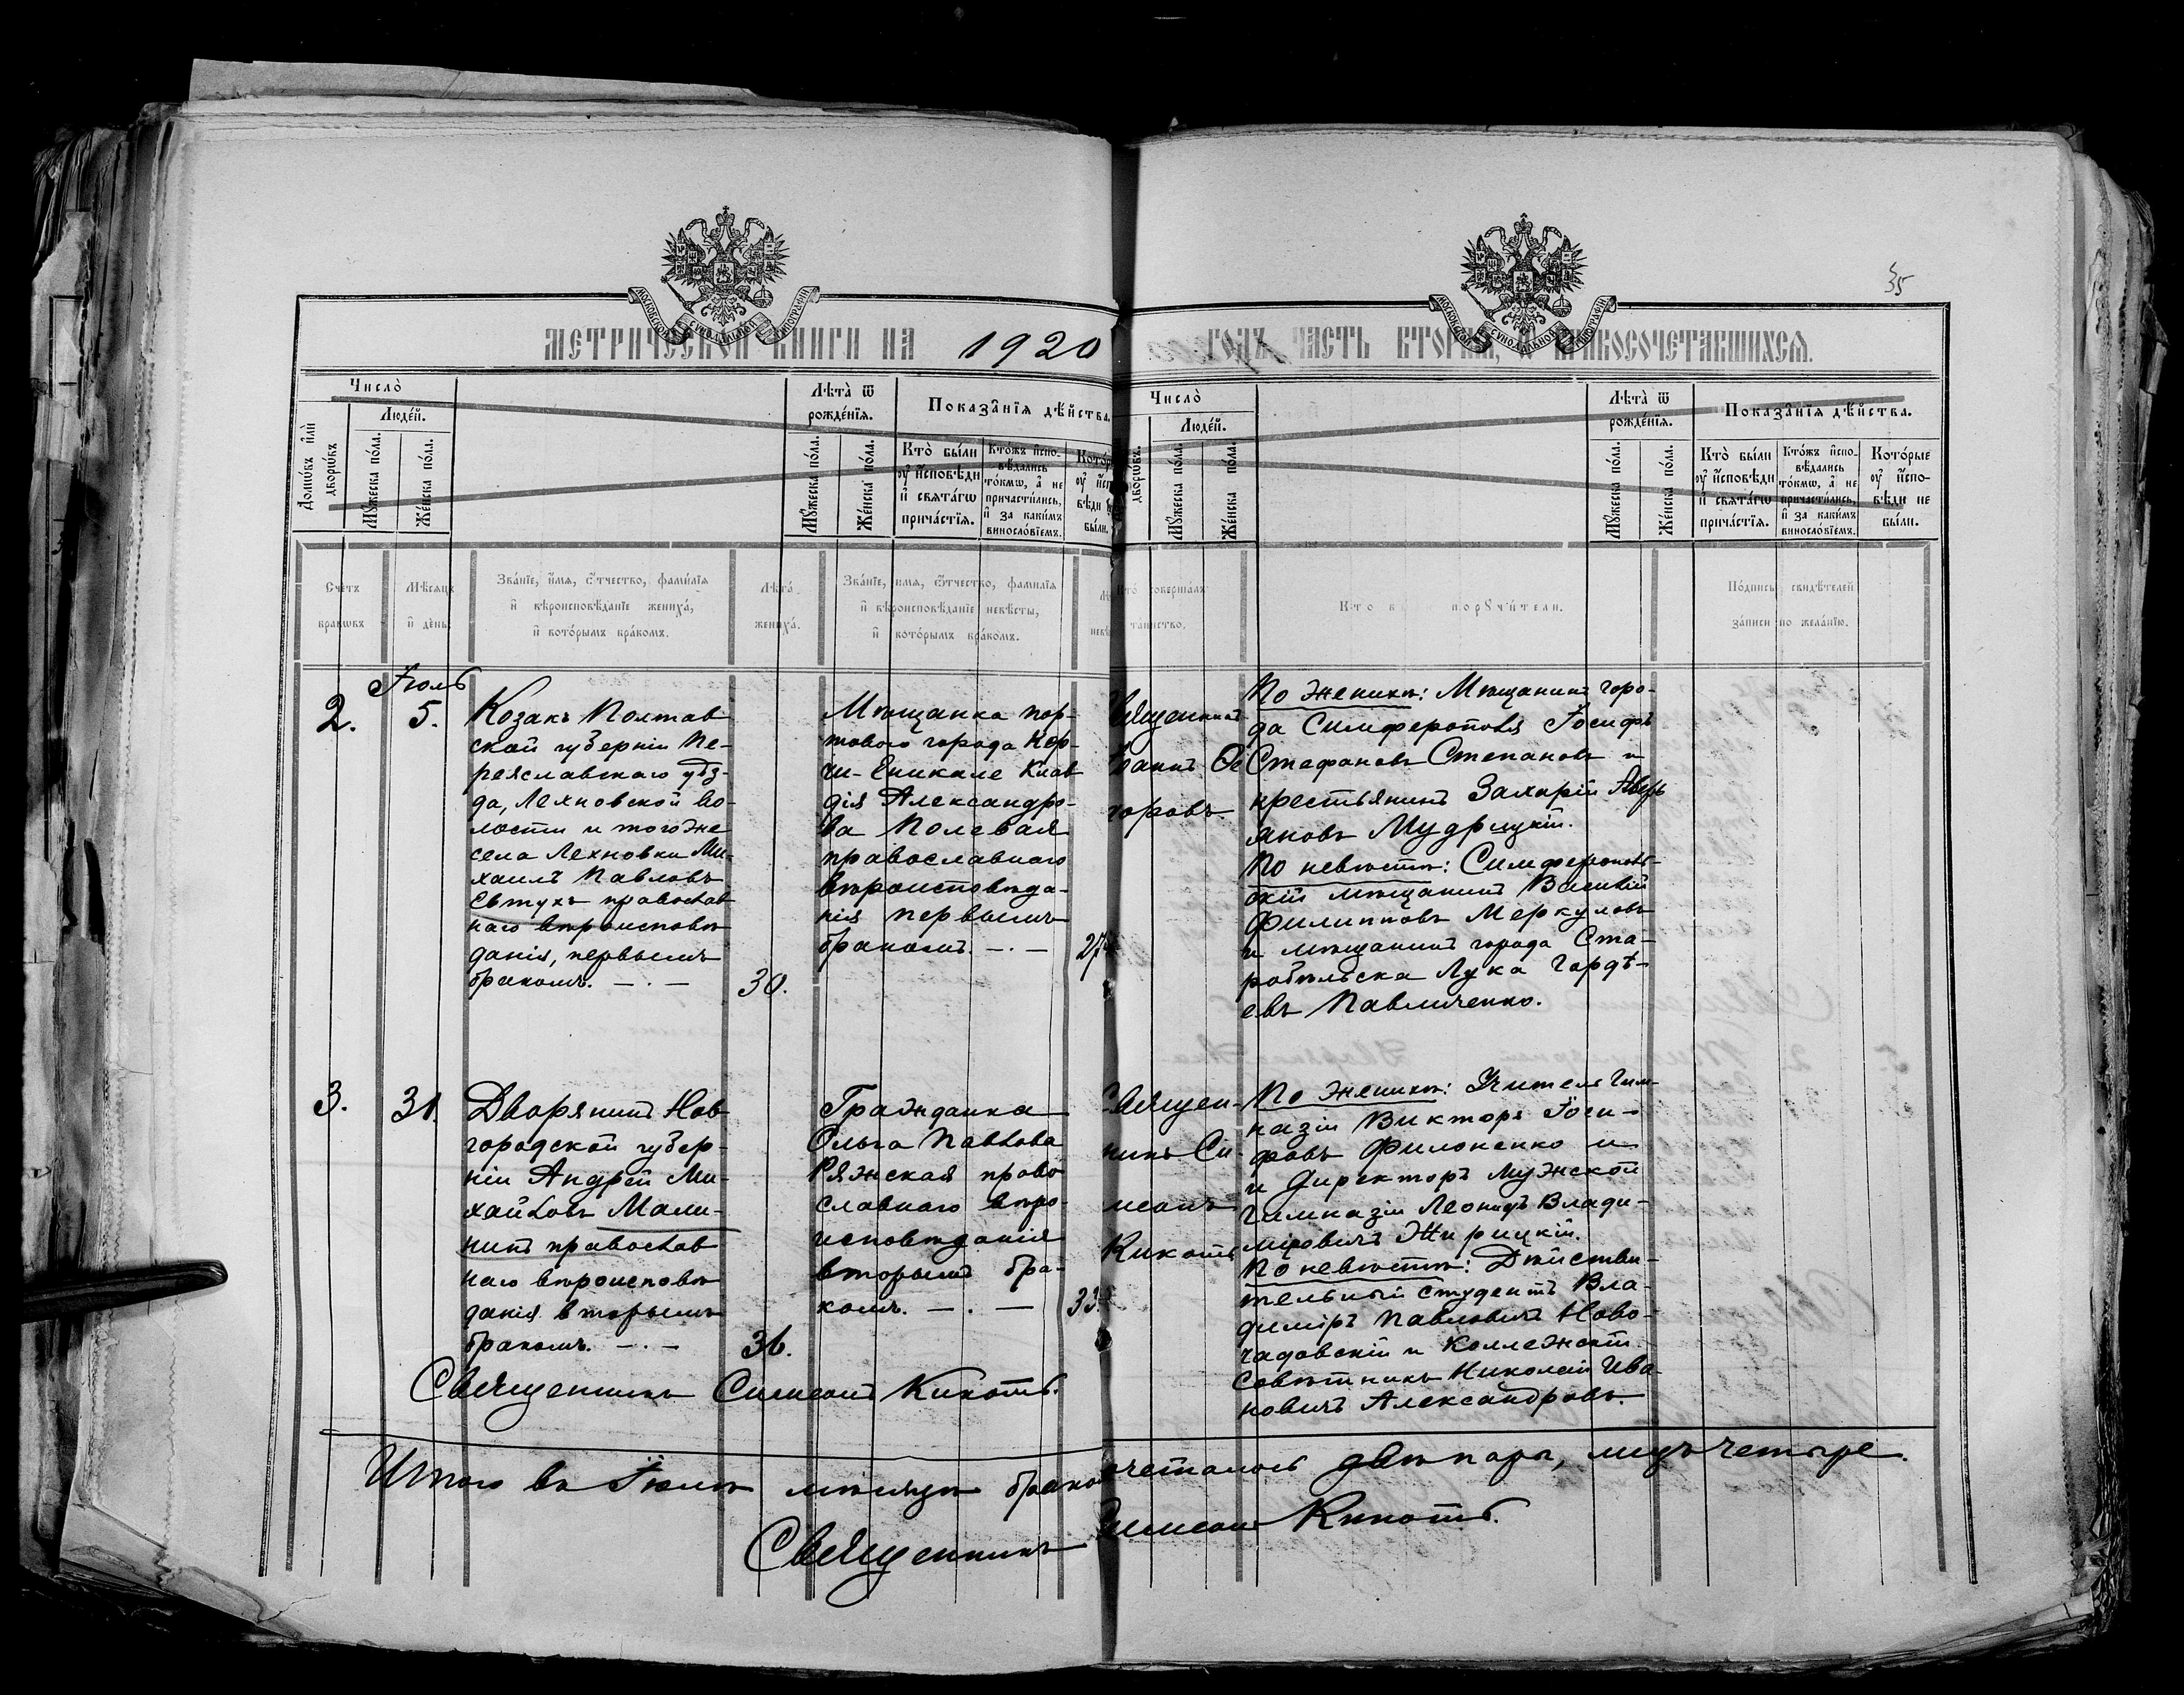 35
МОСКОВСКОЙ СУНОДАЛЬНОЙ ТИПОГРАФІИ
МОСКОВСКОЙ СУНОДАЛЬНОЙ ТИПОГРАФІИ
МЕТРИЧЕСКОЙ КНИГИ НА 1920 ГОДЪ, ЧАСТЬ ВТОРАЯ, О БРАКОСОЧЕТАВШИХСЯ.
Число̀
Домѡ́въ и҆лѝ дворѡ́въ
Люде́й.
Мꙋ́жеска по́ла.
Же́нска по́ла.
Лѣ́та ѿ рожде́нїѧ.
Мꙋ́жеска по́ла.
Же́нска по́ла.
Показа̑нїѧ дѣ́йства.
Кто̀ бы́ли
ᲂу҆ и҆сповѣ́ди
и҆ свѧта́гѡ
прича́стїѧ.
Кто́жъ и҆спо-
вѣ́дались
то́кмѡ, а҆ не
причасти́лись,
и҆ за каки́мъ
винosло́вїемъ.
Число̀
дворѡ́въ.
Люде́й.
Мꙋ́жеска по́ла.
Же́нска по́ла.
Лѣ́та ѿ рожде́нїѧ.
Мꙋ́жеска по́ла.
Же́нска по́ла.
Показа̑нїѧ дѣ́йства.
Кто̀ бы́ли
ᲂу҆ и҆сповѣ́ди
и҆ свѧта́гѡ
прича́стїѧ.
Кто́жъ и҆спо-
вѣ́дались
то́кмѡ, а҆ не
причасти́лись,
и҆ за каки́мъ
винословїемъ.
Кото́рые
ᲂу҆ и҆спо-
вѣ́ди не
бы́ли.
Сче́тъ
бра́кѡвъ
Мѣ́сѧцъ
и҆ де́нь.
Зва́нїе, и҆́мѧ, ѻ҆́тчество, фами́лїѧ
и҆ вѣроисповѣ́данїе жениха̀,
и҆ кото́рымъ бра́комъ.
Лѣта̀
жениха̀.
Зва́нїе, и҆́мѧ, ѻ҆́тчество, фами́лїѧ
и҆ вѣроисповѣ́данїе невѣ́сты,
и҆ кото́рымъ бра́комъ.
Кто̀ соверша́лъ
та́инство.
порꙋчи́тели.
По́дпись свидѣ́телей
за́писи по жела́нїю.
Іюль
2.
5.
Козакъ Полтав
ской губерніи Пе-
реяславскаго уѣз-
да, Лехновской во-
лости и тогоже
села Лехновки Ми-
хаилъ Павловъ
Евтухъ православ
наго вѣроисповѣ
данія, первымъ
бракомъ. — . —
30.
Мѣщанка пор-
товаго города Кер-
чи-Еникале Клав
дія Александро-
ва Полевая
православнаго
вѣроисповѣда-
нія первымъ
бракомъ. — . —
27
Священникъ
Іоаннъ Ѳе
доровъ
По женихѣ: Мѣщанинъ горо-
да Симферополя Іосифъ
Стефановъ Степановъ и
крестьянинъ Захарій Аверь
яновъ Мудрицкій.
По невѣстѣ: Симферополь-
скій мѣщанинъ Василій
Филипповъ Меркуловъ
и мѣщанинъ города Ста-
робѣльска Лука Гордѣ-
евъ Павличенко.
3.
31.
Дворянинъ Нов-
городской губер-
ніи Андрей Ми-
хайловъ Мали-
нинъ православ
наго вѣроисповѣ
данія вторымъ
бракомъ. — . —
36.
Гражданка
Ольга Павлова
Ряжская право
славнаго вѣро-
исповѣданія
вторымъ бра-
комъ. — . —
33
Священ-
никъ Си-
меонъ
Кикоть
По женихѣ: Учитель гим-
назіи Викторъ Іоси-
фовъ Филоненко и
и Директоръ мужской
гимназіи Леонидъ Влади-
міровичъ Жирицкій.
По невѣстѣ: Дѣйстви-
тельный студентъ Вла-
диміръ Павловичъ Ново-
чадовскій и Коллежскій
Совѣтникъ Николай Ива
новичъ Александровъ.
Священникъ Симеонъ Кикоть.
Итого въ Іюлѣ мѣсяцѣ бракосочеталось двѣ пары, лицъ четыре.
Священникъ Симеонъ Кикоть.